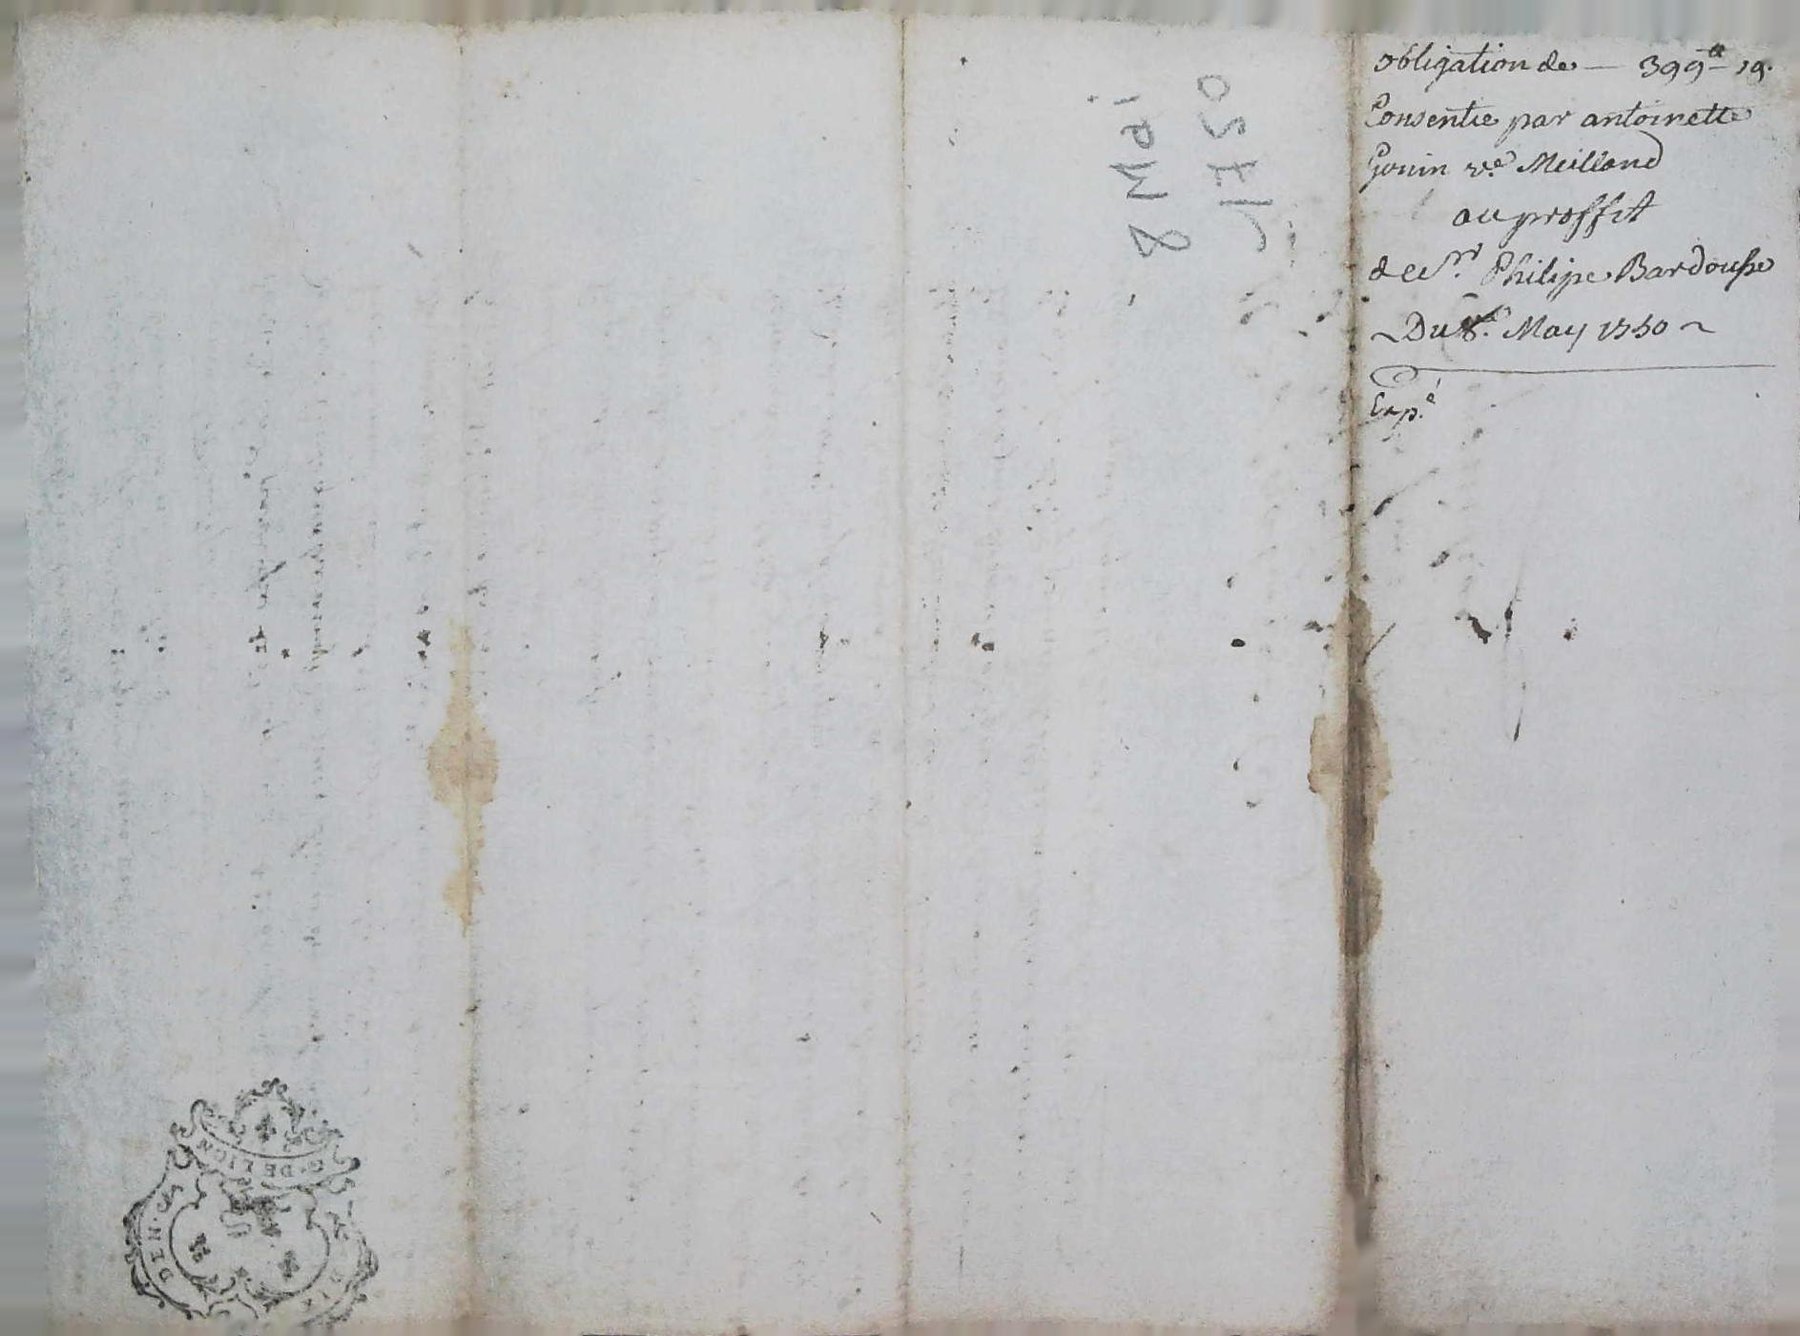 obligation de — 399ᵗᵗ 19.
Consentie par antoinette
Gonin vᵉ. Meilland
au proffit
de sʳ. Philipe Bardousse
~ Du 8ᵉ. May 1750 ~
Expᵉ
8 Mai
1750
G. DE LION
DIX DEN.